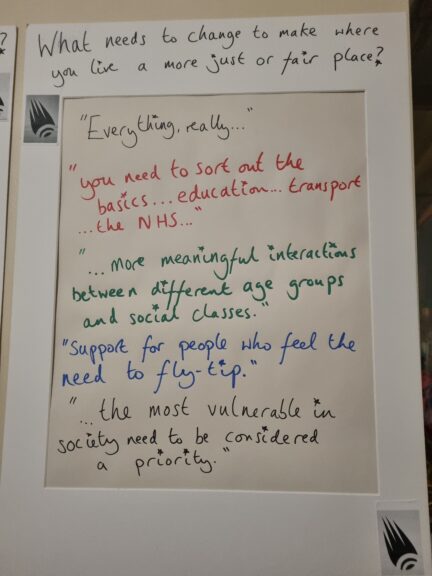 What needs to change to make where
you live a more just or fair place?
"Everything, really..."
"you need to sort out the
basics... education... transport
...the NHS..."
"...more meaningful interactions
between different age groups
and social classes."
"Support for people who feel the
need to fly-tip."
"...the most vulnerable in
society need to be considered
a priority."
?